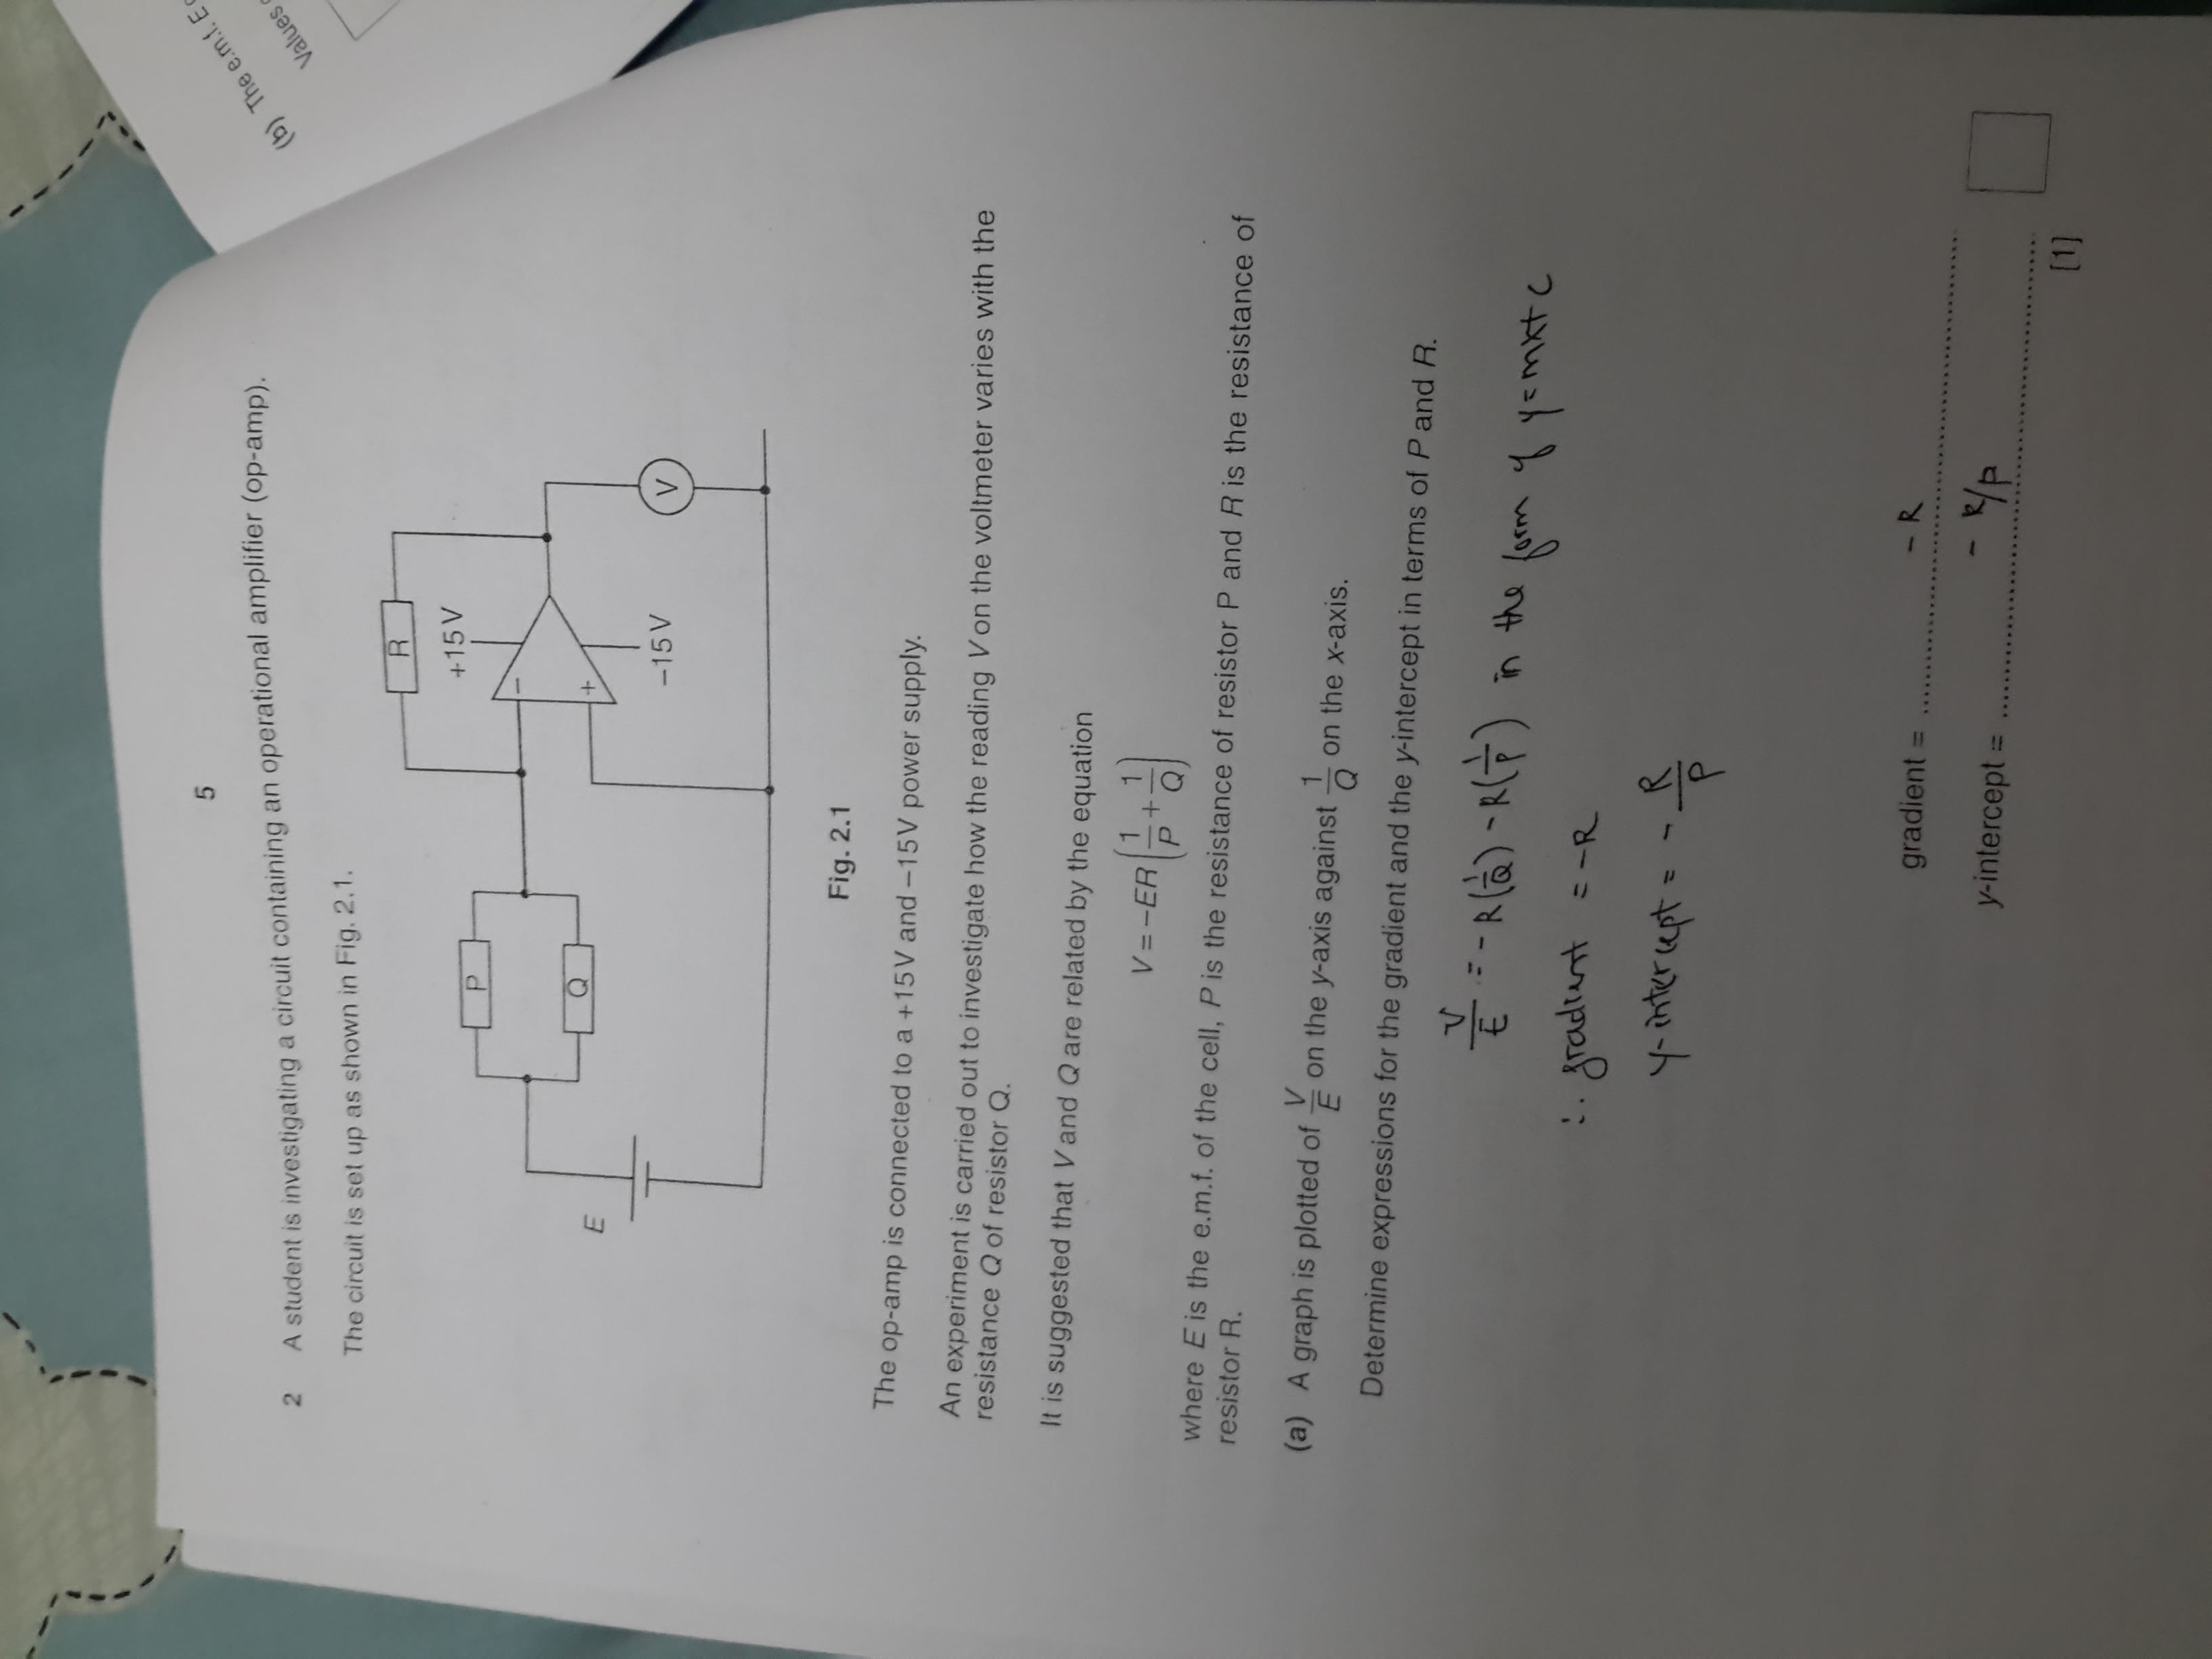 5
2 A student is investigating a circuit containing an operational amplifier (op-amp).
The circuit is set up as shown in Fig. 2.1.
R
+15 V
P
−
Q
E
+
−15 V
V
Fig. 2.1
The op-amp is connected to a +15V and −15V power supply.
An experiment is carried out to investigate how the reading V on the voltmeter varies with the
resistance Q of resistor Q.
It is suggested that V and Q are related by the equation
V = −ER (1/P + 1/Q)
where E is the e.m.f. of the cell, P is the resistance of resistor P and R is the resistance of
resistor R.
(a) A graph is plotted of V/E on the y-axis against 1/Q on the x-axis.
Determine expressions for the gradient and the y-intercept in terms of P and R.
V/E = - R(1/Q) - R(1/P) in the form of y=mx+c
∴ gradient = -R
y-intercept = - R/P
gradient = - R
y-intercept = - R/P
[1]
(b) The e.m.f. E
Values